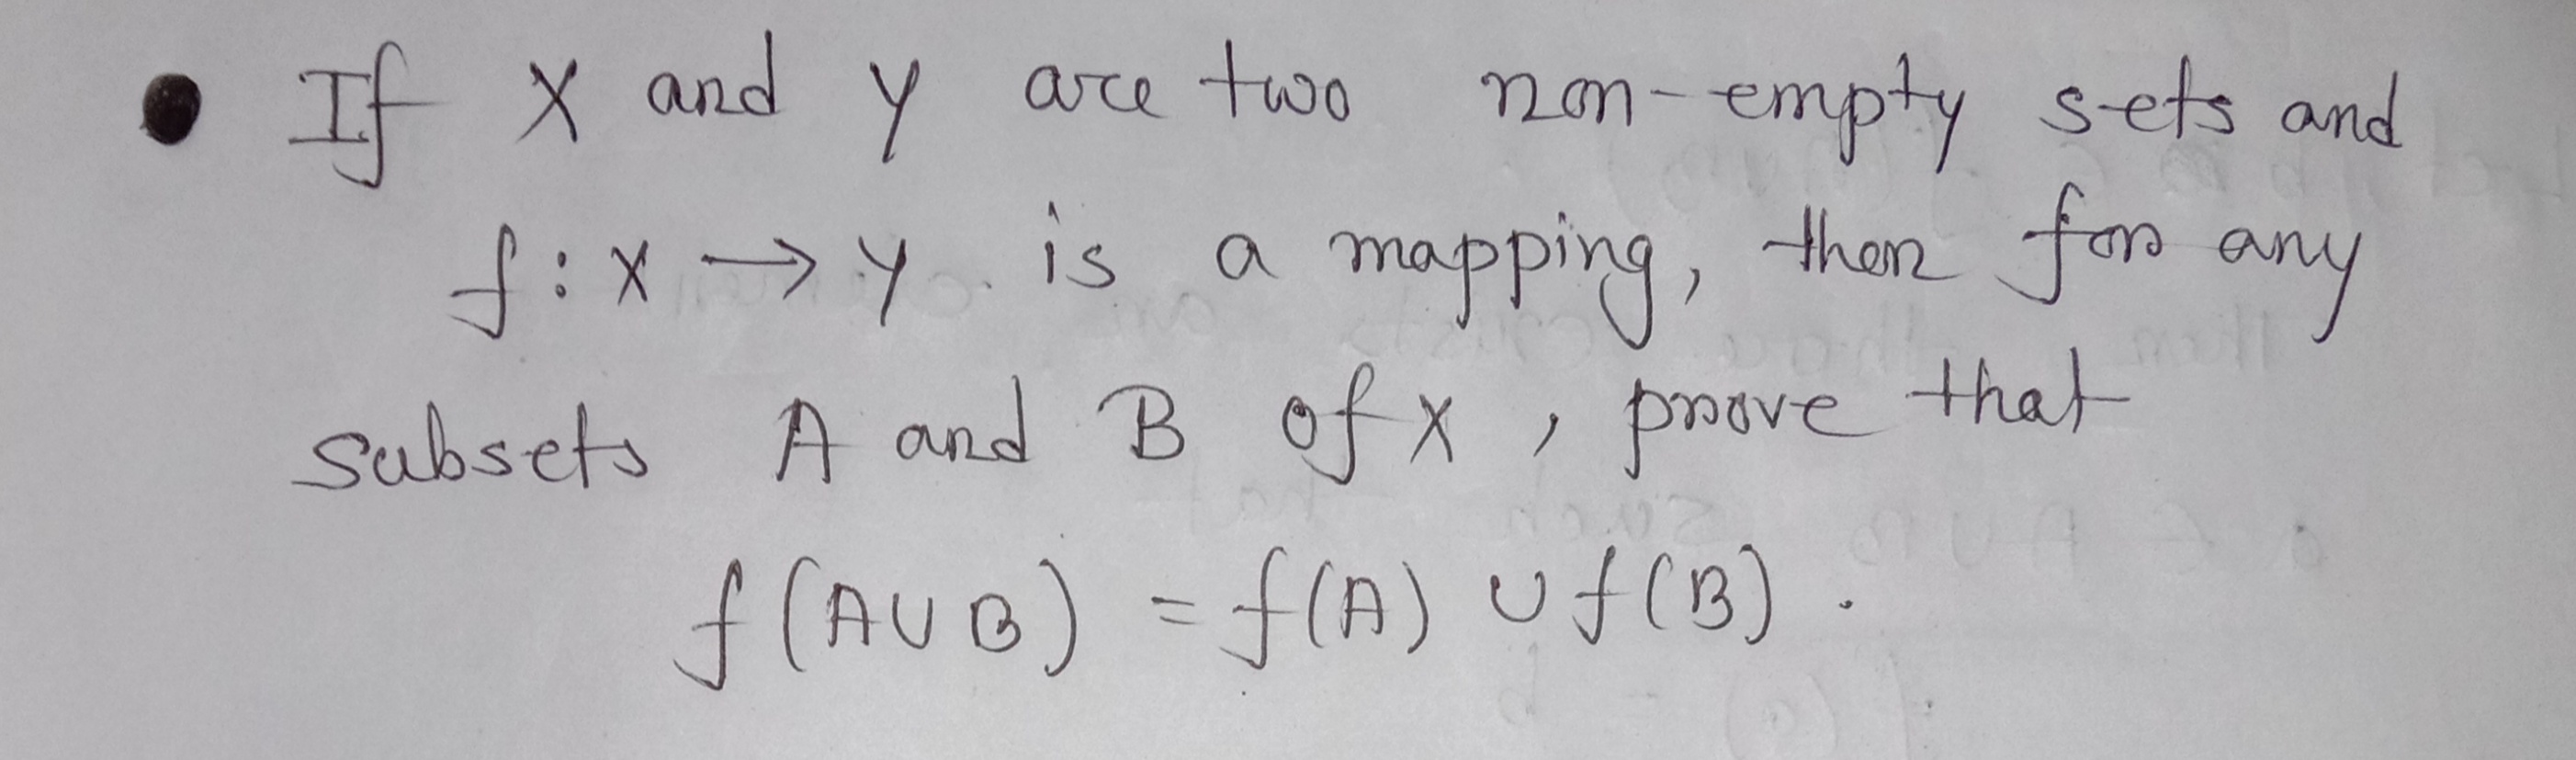 • If X and Y are two non-empty sets and
f : X → Y is a mapping, then for any
subsets A and B of X , prove that
f (A∪B) = f(A) ∪ f(B) .